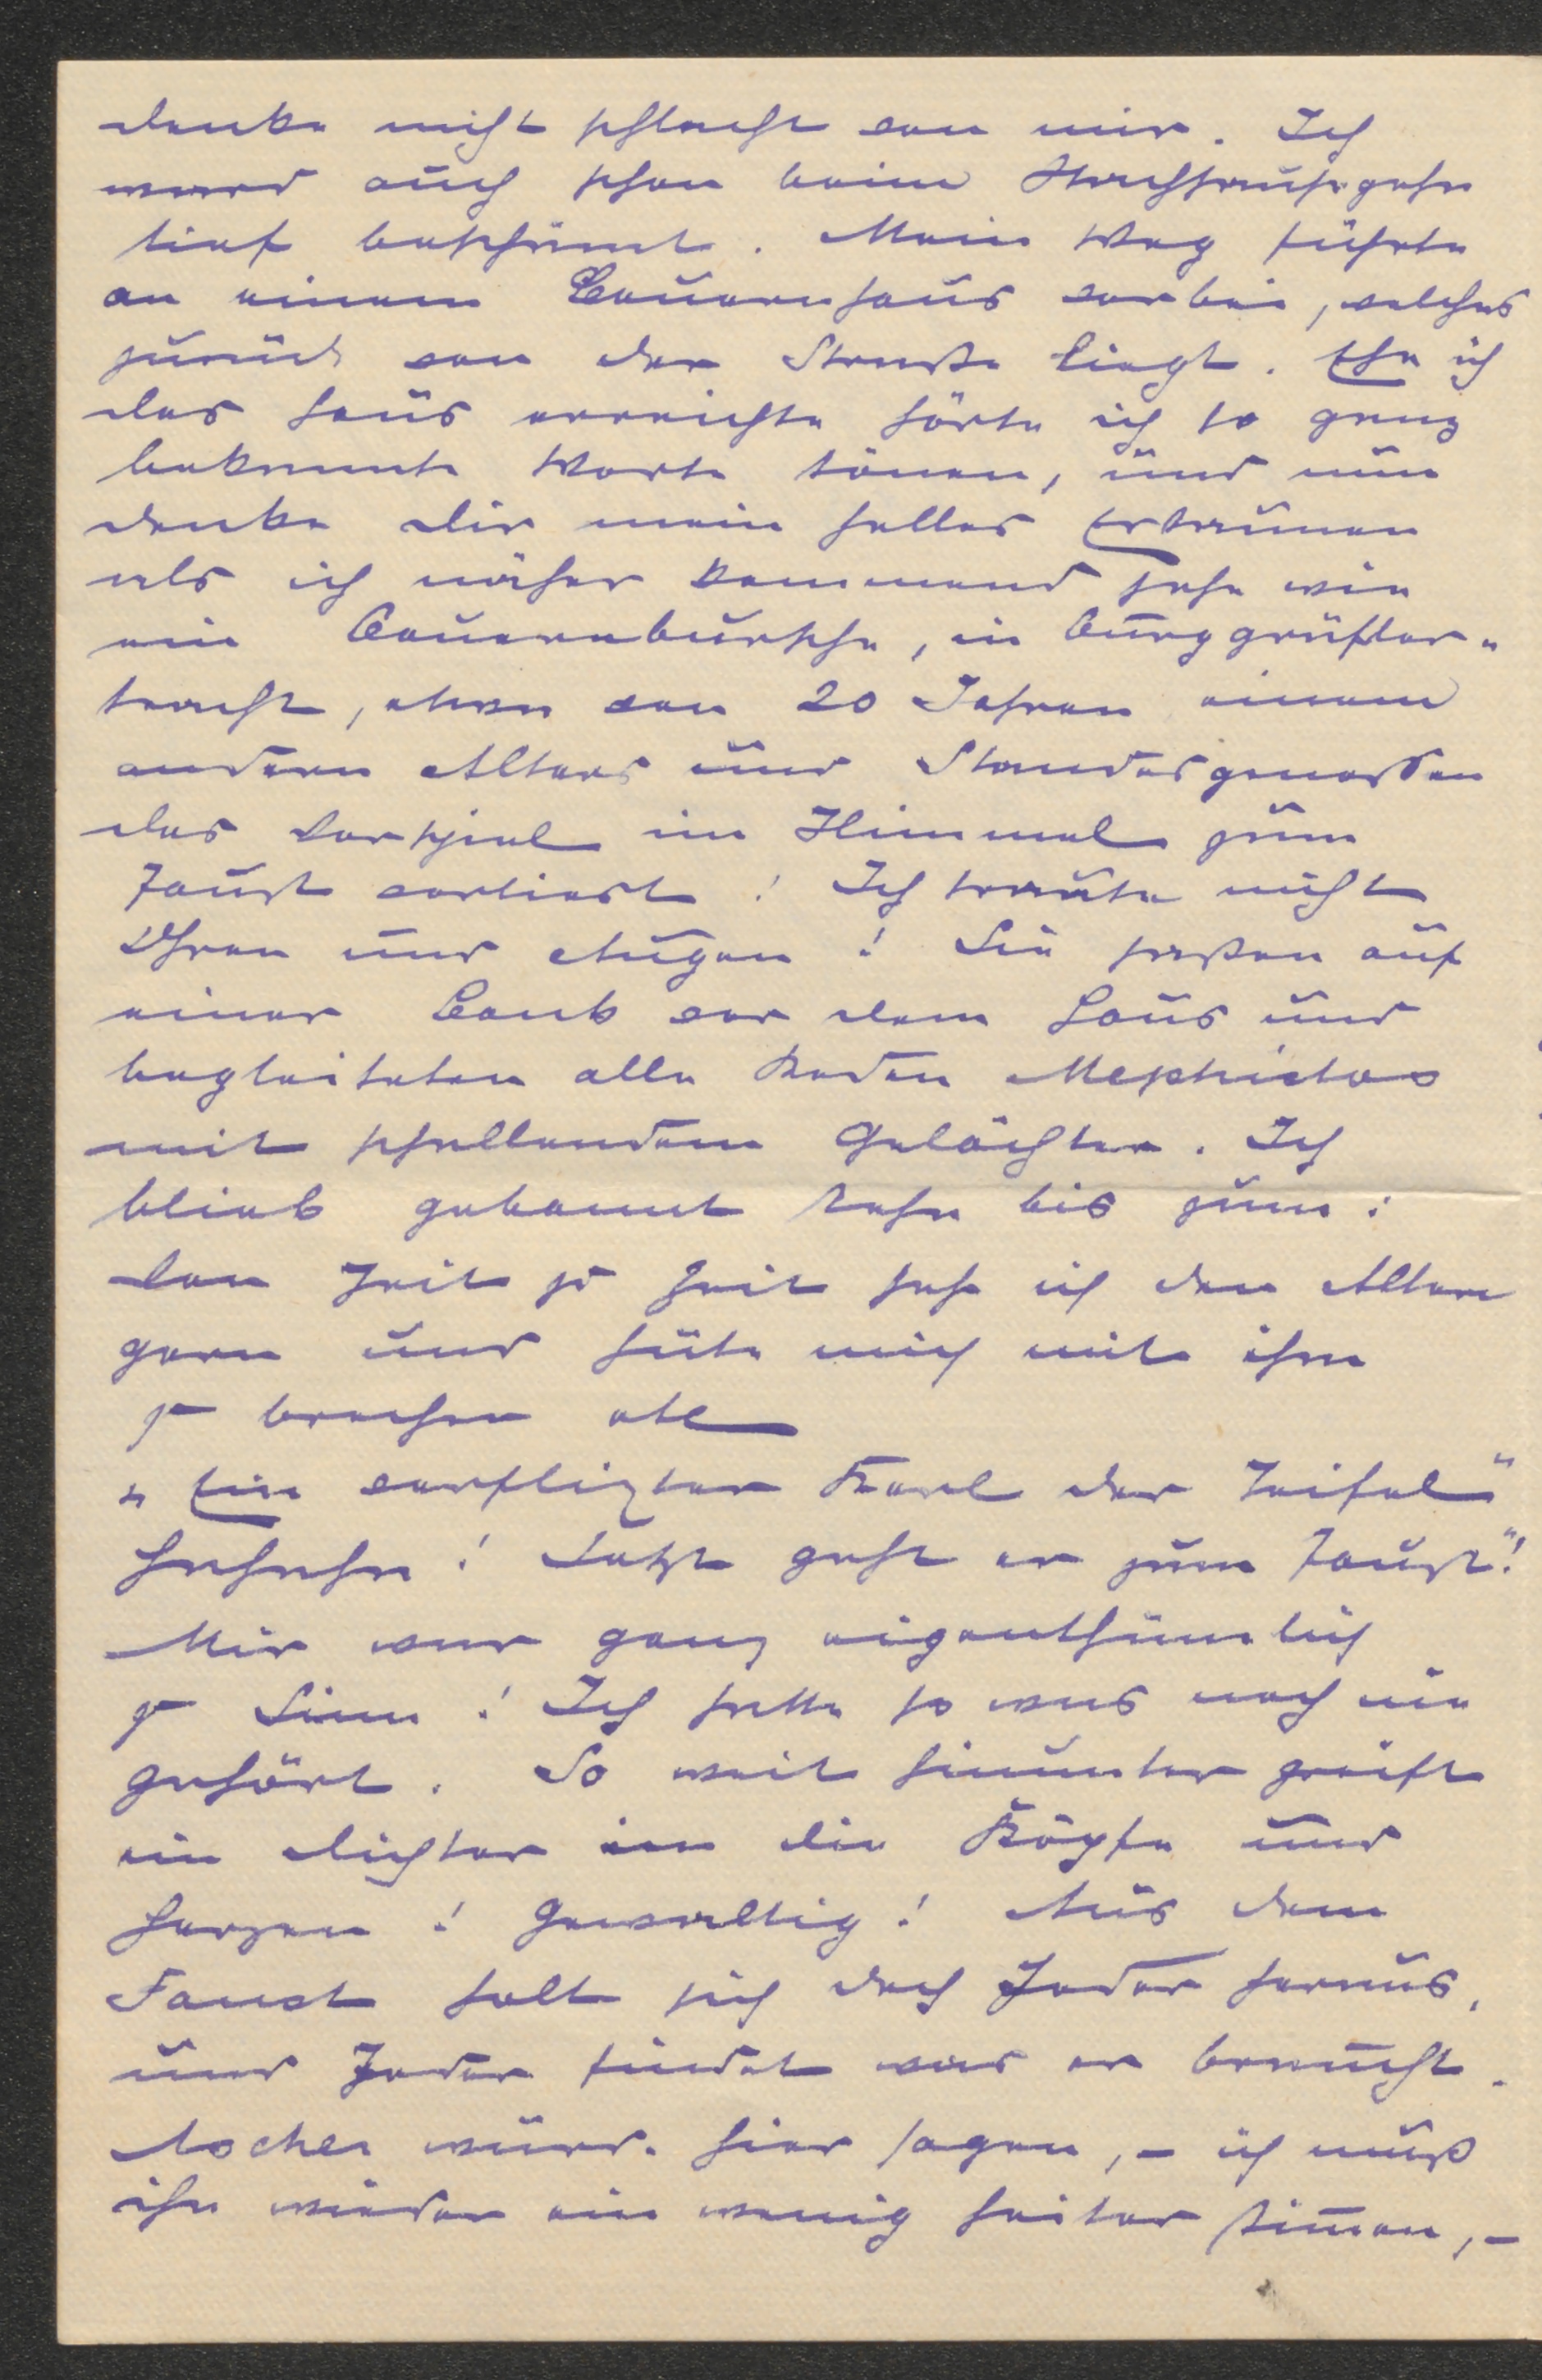 denke nicht schlecht von mir. Ich
ward auch schon beim Nachhausgehn
tief beschämt. Mein Weg führte
an einem Bauernhaus vorbei, welches
zurück von der Straße liegt. Ehe ich
das Haus erreichte hörte ich so ganz
bekannte Worte tönen, und nun
denke dir mein helles Erstaunen
als ich näher kommend sehe wie
ein Bauernbursche, in Burggräfler-
tracht, etwa von 20 Jahren einem
andern Alters und Standesgenossen
das Vorspiel im Himmel zum
Faust vorliest! Ich traute nicht
Ohren und Augen! Sie saßen auf
einer Bank vor dem Haus und
begleiteten alle Reden Mephistos
mit schallendem Gelächter. Ich
blieb gebannt stehn bis zum:
Von Zeit zu Zeit seh ich den Alten
gern und hüte mich mit ihm
zu brechen etc
„Ein verflixter Kerl der Teifel"
Hehehe! Jetzt geht er zum Faust"!
Mir war ganz eigenthümlich
zu Sinn! Ich hatte so was noch nie
gehört. So weit hinunter greift
ein Dichter in die Köpfe und
Herzen! Gewaltig! Aus dem
Faust holt sich doch Jeder heraus,
und Jeder findet was er braucht.
würd. hier sagen, - ich muß
ihn wieder ein wenig heiter stimen, -